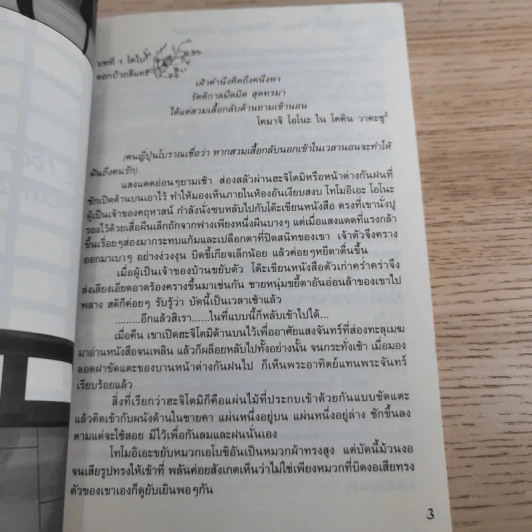 บทที่ 1 โตไบ
ดอกป่าทสึแดง
เฝ้าคำนึงคิดถึงคนึงหา
รัตติกาลมืดมิด สุดทรมา
ได้แต่สวมเสื้อกลับด้านยามเข้านอน
โคมาจิ โอโนะ ใน โคคิน วาคะชู²
(คนญี่ปุ่นโบราณเชื่อว่า หากสวมเสื้อกลับนอกเข้าในเวลานอนจะทำให้
ฝันถึงคนรัก)
แสงแดดอ่อนๆยามเช้า ส่องสลัวผ่านฮะจิโตมิหรือหน้าต่างกันฝนที่
ชักเปิดด้านบนเอาไว้ ทำให้มองเห็นภายในห้องอันเงียบสงบ โทโมอิเอะ โอโนะ
ผู้เป็นเจ้าของคฤหาสน์ กำลังนั่งซบหลับไปกับโต๊ะเขียนหนังสือ ตรงที่เขานั่งปู
รองไว้ด้วยเสื่อผืนเล็กถักจากฟางเพียงหนึ่งผืนบางๆ แต่เมื่อแสงแดดที่แรงกล้า
ขึ้นเรื่อยๆส่องมากระทบแก้มและเปลือกตาที่ปิดสนิทของเขา เจ้าตัวจึงคราง
ออกมาเบาๆ อย่างง่วงงุน บิดขี้เกียจเล็กน้อย แล้วค่อยๆหยีตาตื่นขึ้น
เมื่อผู้เป็นเจ้าของบ้านขยับตัว โต๊ะเขียนหนังสือตัวเก่าคร่ำคร่าจึง
ส่งเสียงเอียดอาดร้องครางขึ้นมาเช่นกัน ชายหนุ่มขยี้ตาอันอ่อนล้าของเขาไป
พลาง สติก็ค่อยๆ รับรู้ว่า บัดนี้เป็นเวลาเช้าแล้ว
........อีกแล้วสิเรา......ในที่แบบนี้ก็หลับเข้าไปได้...
เมื่อคืน เขาเปิดฮะจิโตมิด้านบนไว้เพื่ออาศัยแสงจันทร์ที่ส่องทะลุเมฆ
มาอ่านหนังสือจนเพลิน แล้วก็ผล็อยหลับไปทั้งอย่างนั้น จนกระทั่งเช้า เมื่อมอง
ลอดฝาขัดแตะของบานหน้าต่างกันฝนไป ก็เห็นพระอาทิตย์แทนพระจันทร์
เรียบร้อยแล้ว
สิ่งที่เรียกว่าฮะจิโตมิก็คือแผ่นไม้ที่ประกบเข้าด้วยกันแบบขัดแตะ
แล้วติดเข้ากับผนังด้านในชายคา แผ่นหนึ่งอยู่บน แผ่นหนึ่งอยู่ล่าง ชักขึ้นลง
ตามแต่จะใช้สอย มีไว้เพื่อกันลมและฝนนั่นเอง
โทโมอิเอะขยับหมวกเอโบชิอันเป็นหมวกผ้าทรงสูง แต่บัดนี้ม้วนงอ
จนเสียรูปทรงให้เข้าที่ พลันค่อยสังเกตเห็นว่าไม่ใช่เพียงหมวกที่บิดงอเสียทรง
ตัวของเขาเองก็ดูยับเยินพอๆกัน
3